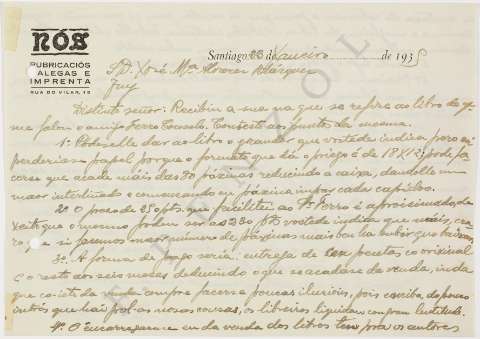 NÓS
PUBRICACIÓS
GALEGAS E
IMPRENTA
RUA DO VILAR, 15
Santiago, de Xaneiro de 1935
S. D. Xosé Mª Alvarez Blázquez
Tuy
Distinto señor: Recibin a sua na que se refire ao libro de q.
me falou o amigo Ferro Couselo. Contesto aos puntos da mesma.
1º Pódeselle dar ao libro o grandor que vostede indica pero
perderíase papel porque o formato que dá o priego é de 18 X 12; pode
que acade mais das 80 páxinas reducindo a caixa, dandolle un
maor interliñado e comenzando en páxina impar cada capídoo.
2º O preso de 250 pts. que facilitei ao Sr. Ferro é aproisimado, de
xeito que o mesmo poden ser as 230 pts vostede indica que mais,
si facemos maor número de páxinas mais ben ha subir que baixar.
3º A forma de pago sería: entrega de cen pesetas co orixinal
e o resto aos seis meses deducindo o que se acadase da venda, inda
que coisto da venda compre facerse poucas ilusiós, pois
outrós que hai pol-as nosas cousas, os libreiros liquidan con gran lentitude.
4º O encarregarme eu da venda dos libros ten pra os autores